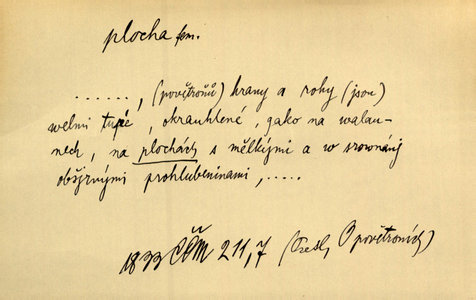 plocha fem.
......, (povětroňů) hrany a rohy (jsou)
welmi tupé, okrauhlené, gako na walau-
nech, na plochách s mělkými a w srownánj
obšjrnými prohlubeninami, .....
1833 ČČM 211,7 (Presl, O povětroních)